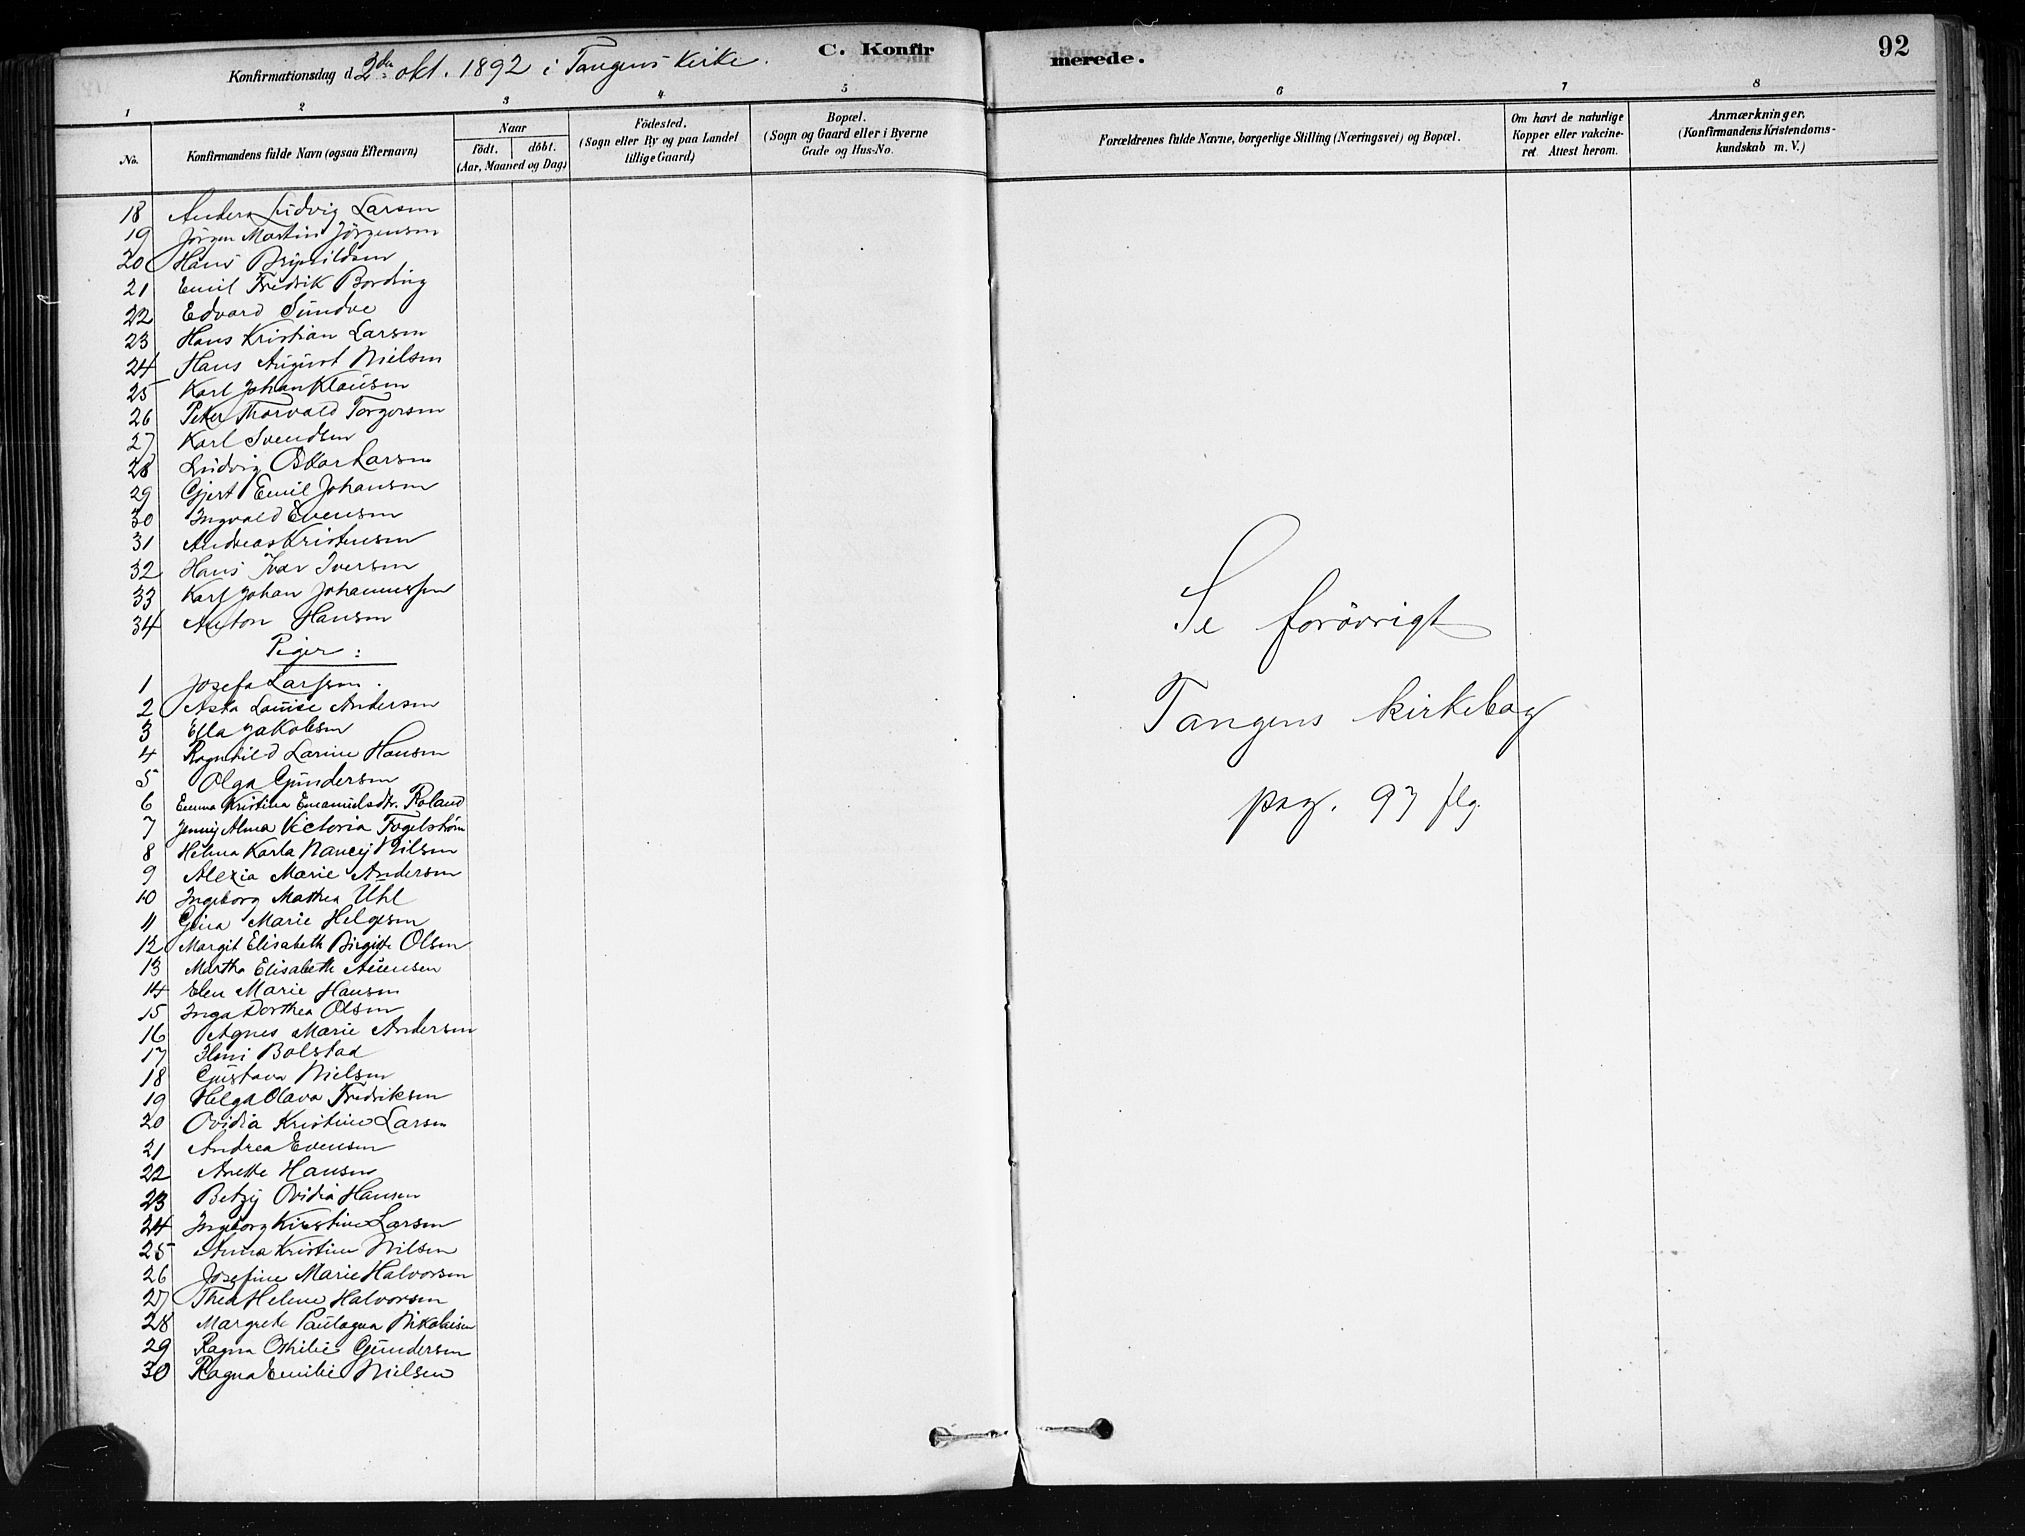 C. Konfirmerede.
92
Konfirmationsdag d. 2den okt. 1892 i Tangens kirke.
1 2 3 4 5 6 7 8
No.
Konfirmandens fulde Navn (ogsaa Efternavn)
Naar
födt. döbt.
(Aar, Maaned og Dag)
Födested.
(Sogn eller By og paa Landet
tillige Gaard)
Bopæl.
(Sogn og Gaard eller i Byerne
Gade og Hus-No.
Forældrenes fulde Navne, borgerlige Stilling (Næringsvei) og Bopæl.
Om havt de naturlige
Kopper eller vakcine-
ret. Attest herom.
Anmærkninger.
(Konfirmandens Kristendoms-
kundskab m. V.)
18 Anders Ludvig Larsen
19 Jörgen Martin Jörgensen
20 Hans Brynildsen
21 Emil Fredrik Bording
22 Edvard Sundve
23 Hans Kristian Larsen
24 Hans August Nielsen
25 Karl Johan Klausen
26 Peter Thorvald Torgersen
27 Karl Svendsen
28 Ludvig Oskar Larsen
29 Gjert Emil Johansen
30 Ingvald Evensen
31 Andreas Kristensen
32 Hans Ivar Iversen
33 Karl Johan Johannessen
34 Anton Hansen
Piger:
1 Josefa Larssen.
2 Asta Louise Andersen
3 Ella Jakobsen
4 Ragnhild Larine Hansen
5 Olga Gundersen
6 Emma Kristina Emanuelsdtr. Roland
7 Jenny Alma Victoria Fogelström
8 Helma Karla Nancy Nilsen
9 Alexia Marie Andersen
10 Ingeborg Mathea Uhl
11 Gina Marie Helgesen
12 Margit Elisabeth Birgitte Olsen
13 Martha Elisabeth Auensen
14 Elen Marie Hansen
15 Inga Dorthea Olsen
16 Agnes Marie Andersen
17 Bolstad
18 Gustava Nielsen
19 Helga Olava Fredriksen
20 Ovidia Kristine Larsen
21 Andrea Evensen
22 Anette Hansen
23 Betzy Ovidia Hansen
24 Ingeborg Kirstine Larsen
25 Anna Kristine Nilsen
26 Josefine Marie Halvorsen
27 Thea Helene Halvorsen
28 Margrete Paulagna Nikolaisen
29 Ragna Othilie Gundersen
30 Ragna Emilie Nielsen
Se forövrigt
Tangens kirkebog
pag. 97 flg.